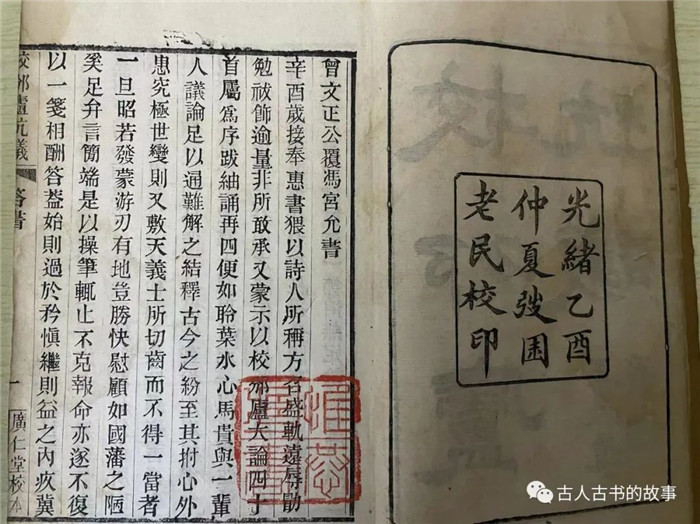 光緒乙酉
仲夏弢園
老民校印
曾文正公覆馮宮允書
辛酉歲接奉惠書猥以詩人所稱方召盛軌遠辱勛
勉祓飾逾量非所敢承又蒙示以校邠廬大論四十
首屬爲序跋紬誦再四便如聆葉水心馬貴與一輩
人議論足以通難解之結釋古今之紛至其拊心外
患究極世變則又敷天義士所切齒而不得一當者
一旦昭若發蒙游刃有地豈勝快慰顧如國藩之陋
奚足弁言簡端是以操筆輒止不克報命亦遂不復
以一箋相酬答葢始則過於矜愼繼則益之內疚冀
校邠廬抗議 答書 一 廣仁堂校本
古人古书的故事